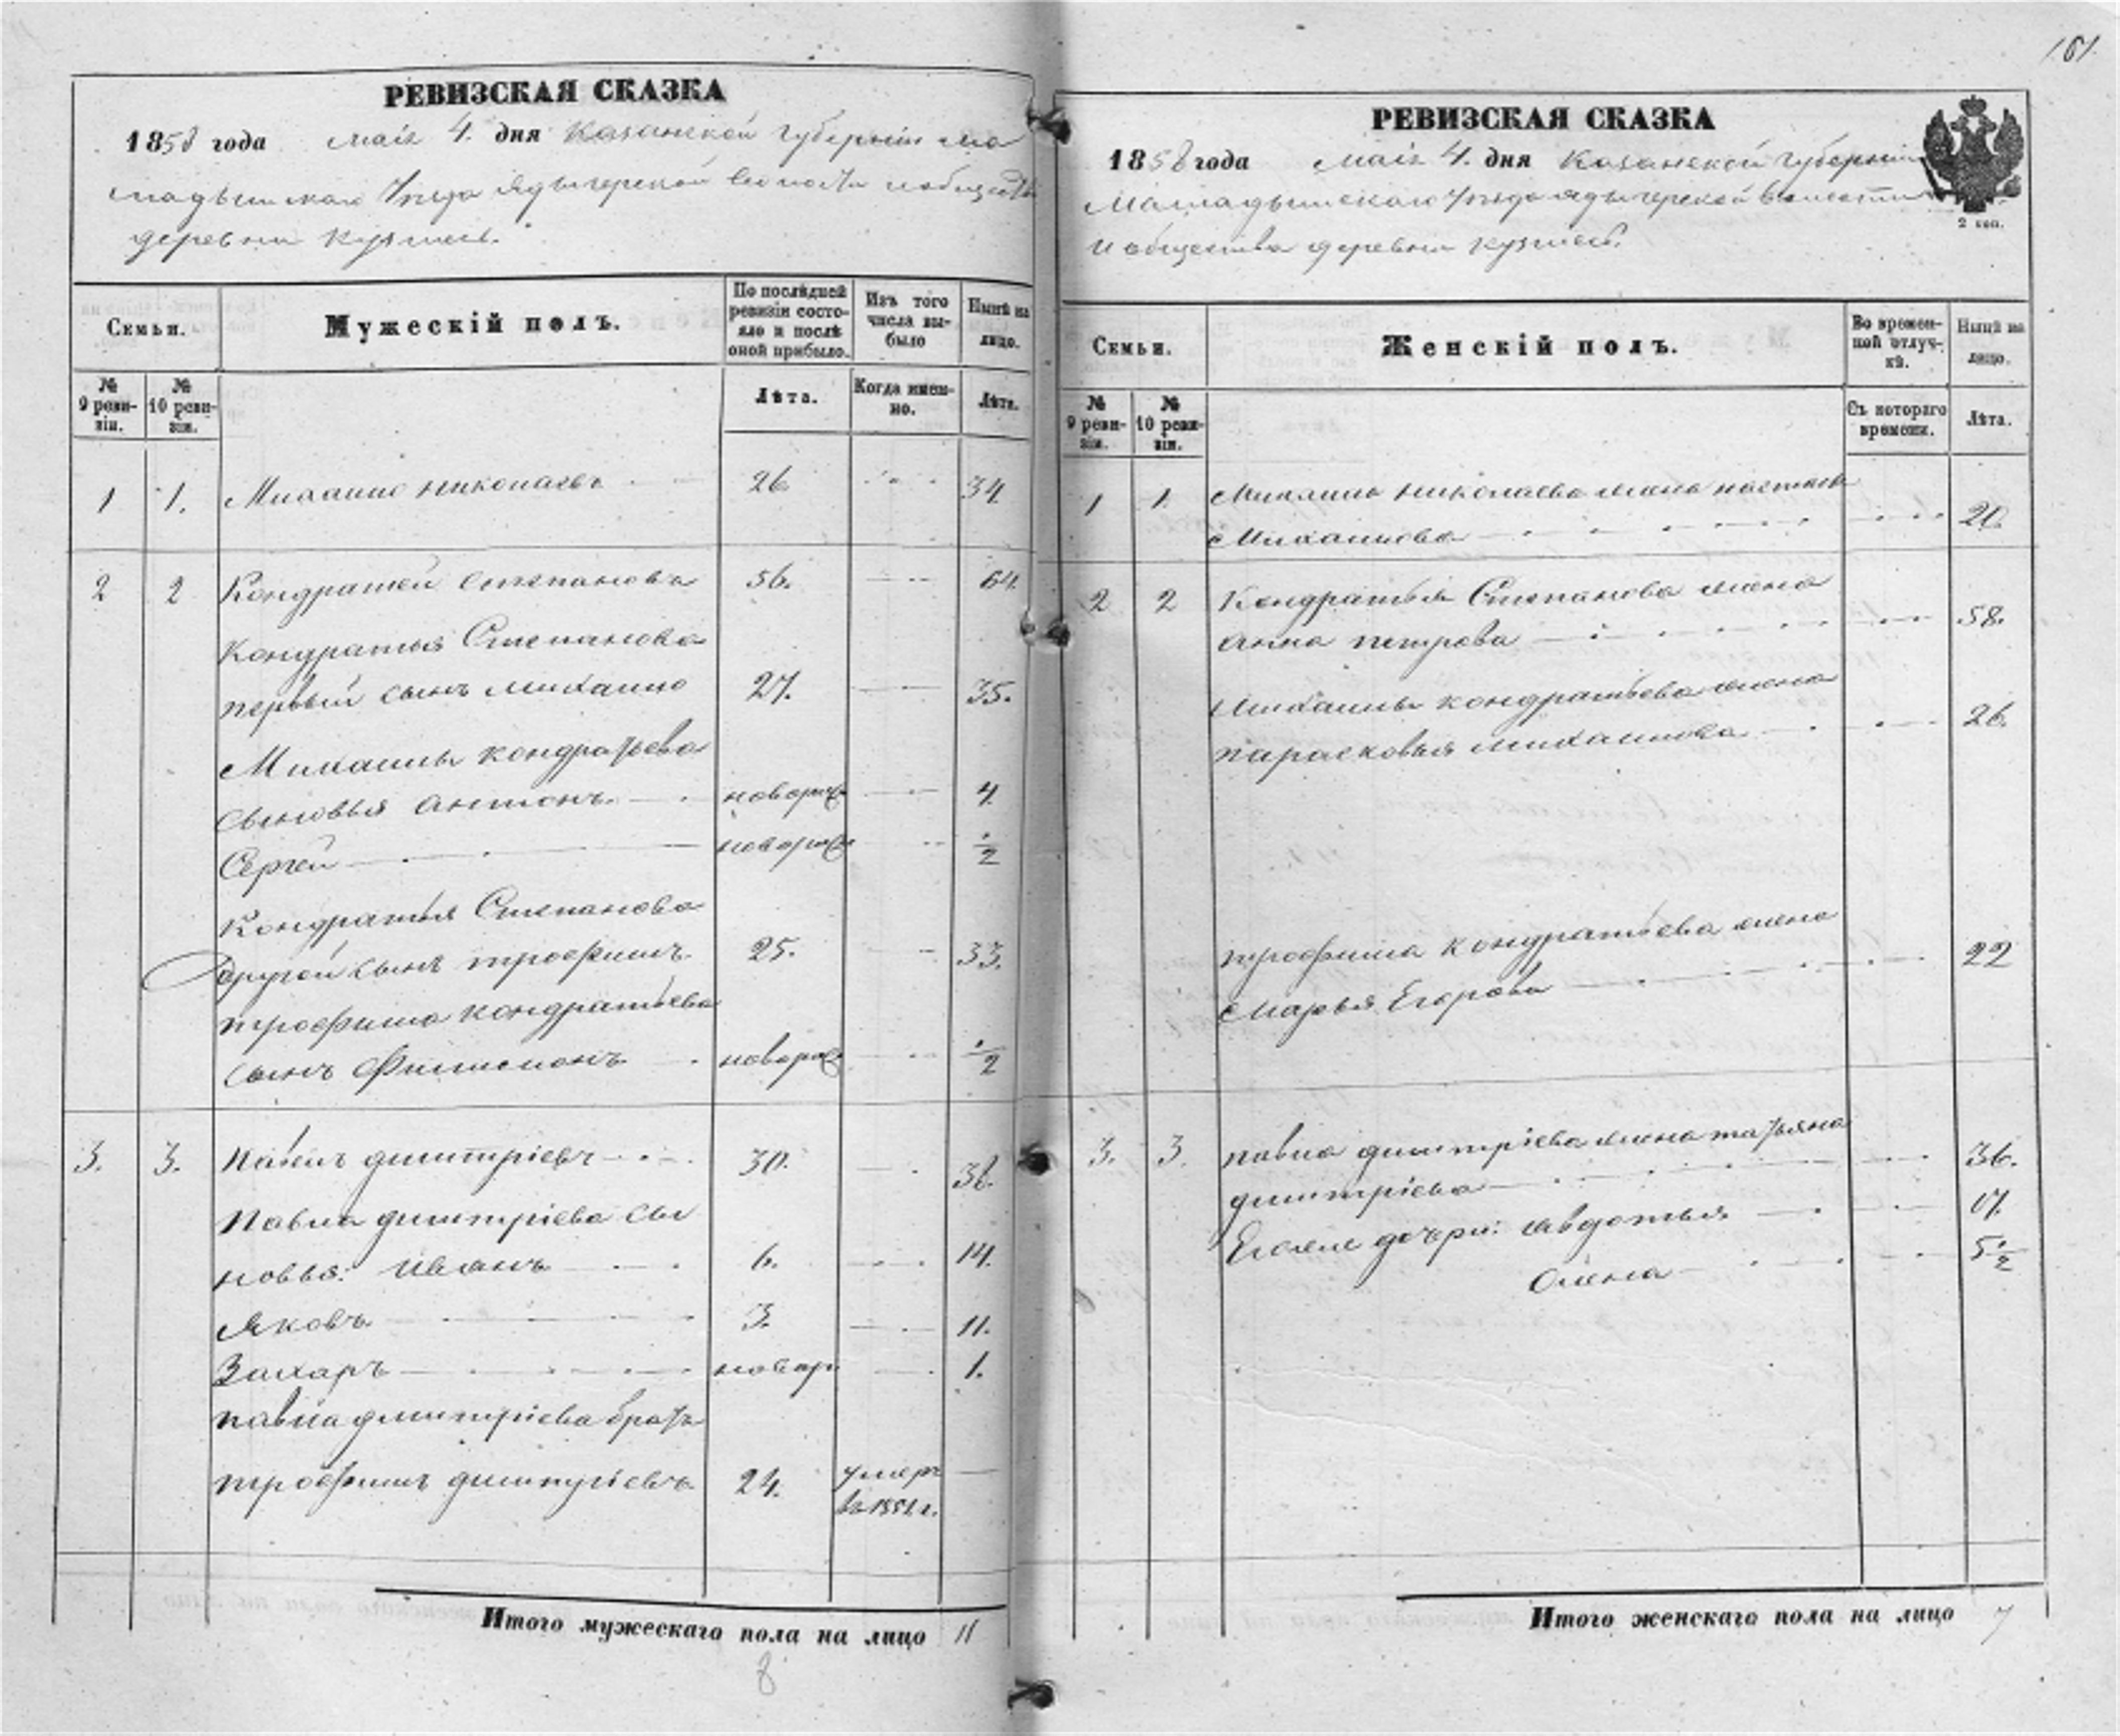 РЕВИЗСКАЯ СКАЗКА
1858 года маія 4. дня Казанской губерніи Ма
мадышскаго Уезда Ядыгерской волости и общества
деревни
Семьи.
Мужескій полъ.
По послѣдней ревизіи состояло и послѣ оной прибыло.
Изъ того числа выбыло
Нынѣ на лицо.
№ 9 ревизіи.
№ 10 ревизіи.
Лѣта.
Когда именно.
Лѣта.
1 1. Михаило Николаевъ 26 34
2 2 Кондратей Степановъ 56. 64
Кондратья Степанова
первый сынъ Михаило 27. 35.
Михаилы Кондратьева
сыновья Антонъ новорож 4
Сергей новорож 1/2
Кондратья Степанова
другой сынъ Трофимъ 25. 33.
Трофима Кондратьева
сынъ Филимонъ новорож 1/2
3. 3. Павелъ Димитріевъ 30. 38.
Павла Димитріева сы
новья: Иванъ 6. 14.
Яковъ 3. 11.
Захаръ новор 1.
Павла Димитріева братъ
Трофимъ Димитріевъ 24. умеръ
въ 1851 г.
Итого мужескаго пола на лицо 11
8
161
РЕВИЗСКАЯ СКАЗКА
1858 года маія 4. дня Казанской губерніи
Мамадышскаго Уезда Ядыгерской волости
и общества деревни
2 коп.
Семьи.
Женскій полъ.
Во временной отлучкѣ.
Нынѣ на лицо.
№ 9 ревизіи.
№ 10 ревизіи.
Съ котораго времени.
Лѣта.
1 1 Михаила Николаева жена Настась
Михаилова 20
2 2 Кондратья Степанова жена
Анна Петрова 58.
Михаилы Кондратьева жена
Парасковья Михаилова 26.
Трофима Кондратьева жена
Марья Егорова 22
3. 3. Павла Димитріева жена Татьяна
Димитріева 36.
Его же дочери: Авдотья
Олена 5 1/2
Итого женскаго пола на лицо 7